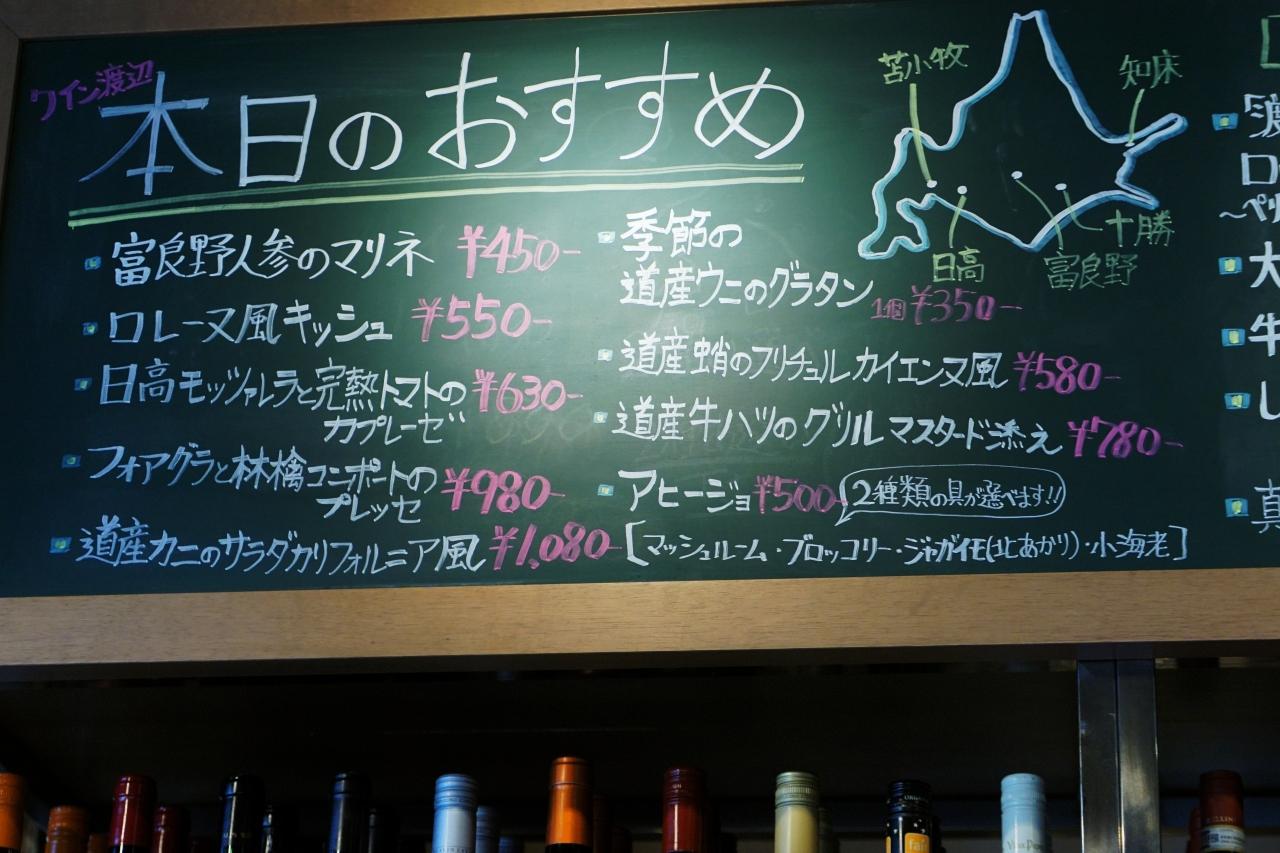 ワイン渡辺
本日のおすすめ
富良野人参のマリネ ¥450-
ロレーヌ風キッシュ ¥550-
日高モッツァレラと完熟トマトの ¥630-
カプレーゼ
フォアグラと林檎コンポートの ¥980-
プレッセ
道産カニのサラダカリフォルニア風 ¥1,080-
季節の
道産ウニのグラタン 1個 ¥350-
道産蛸のフリチュール カイエンヌ風 ¥580-
道産牛ハツのグリル マスタード添え ¥780-
アヒージョ ¥500- 2種類の具が選べます!!
[マッシュルーム・ブロッコリー・ジャガイモ(北あかり)・小海老]
苫小牧
知床
十勝
日高
富良野
大
牛
し
真